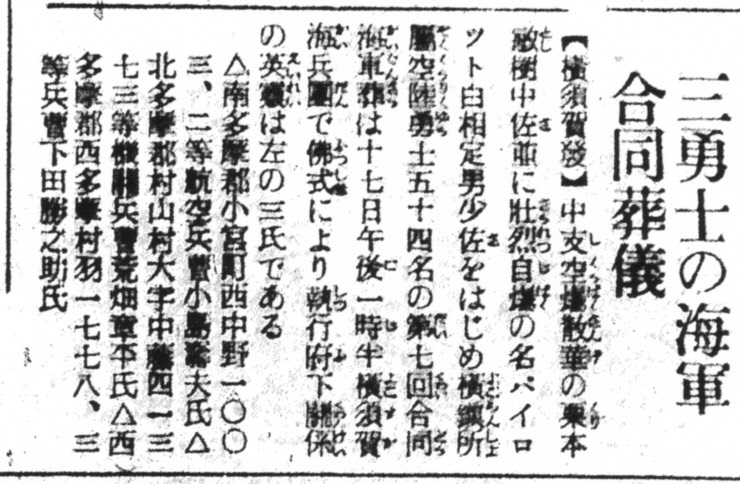 三勇士の海軍
合同葬儀
【横須賀發】中支空爆散華の栗本
敏樹中佐並に壯烈自爆の名パイロ
ット白相定男少佐をはじめ橫鎭所
屬空陸勇士五十四名の第七回合同
海軍葬は十七日午後一時半橫須賀
海兵團で佛式により執行府下關係
の英靈は左の三氏である
△南多摩郡小宮町西中野一〇〇
三、二等航空兵曹小島 夫氏△
北多摩郡村山村大字中藤四一三
七三等機關兵曹荒畑 平氏△西
多摩郡西多摩村羽一七七八、三
等兵曹下田勝之助氏